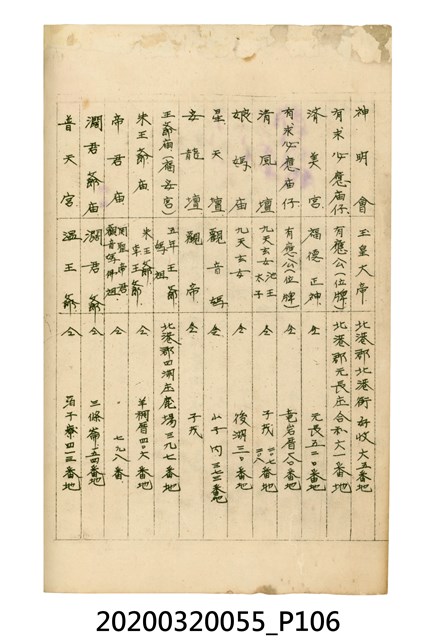 神明會 玉皇大帝 北港郡北港街好收大五番地
有求必應庙仔 有應公(位牌) 北港郡元長庄合和大一番地
济美宮 福德正神 仝 元長五二〇番地
有求必應庙仔 有應公(位牌) 仝 竜岩厝八〇番地
清風壇 九天玄女 池王 太子 仝 子茂
娘媽庙 九天玄女 仝 後湖三〇番地
星天壇 觀音媽 仝 山子內三七三番地
安龍壇 觀帝 仝 子茂
王爺庙(福安宮) 五年王爺 媽祖 北港郡四湖庄鹿場三九七番地
朱王爺庙 朱王爺 李王爺 仝 羊稠厝四〇六番地
帝君庙 関聖帝君 觀音媽祖 仝 七九八番
澗君爺庙 澗君爺 仝 三條崙一五四番地
普天宮 溫王爺 仝 萡子寮四一三番地
20200320055_P106